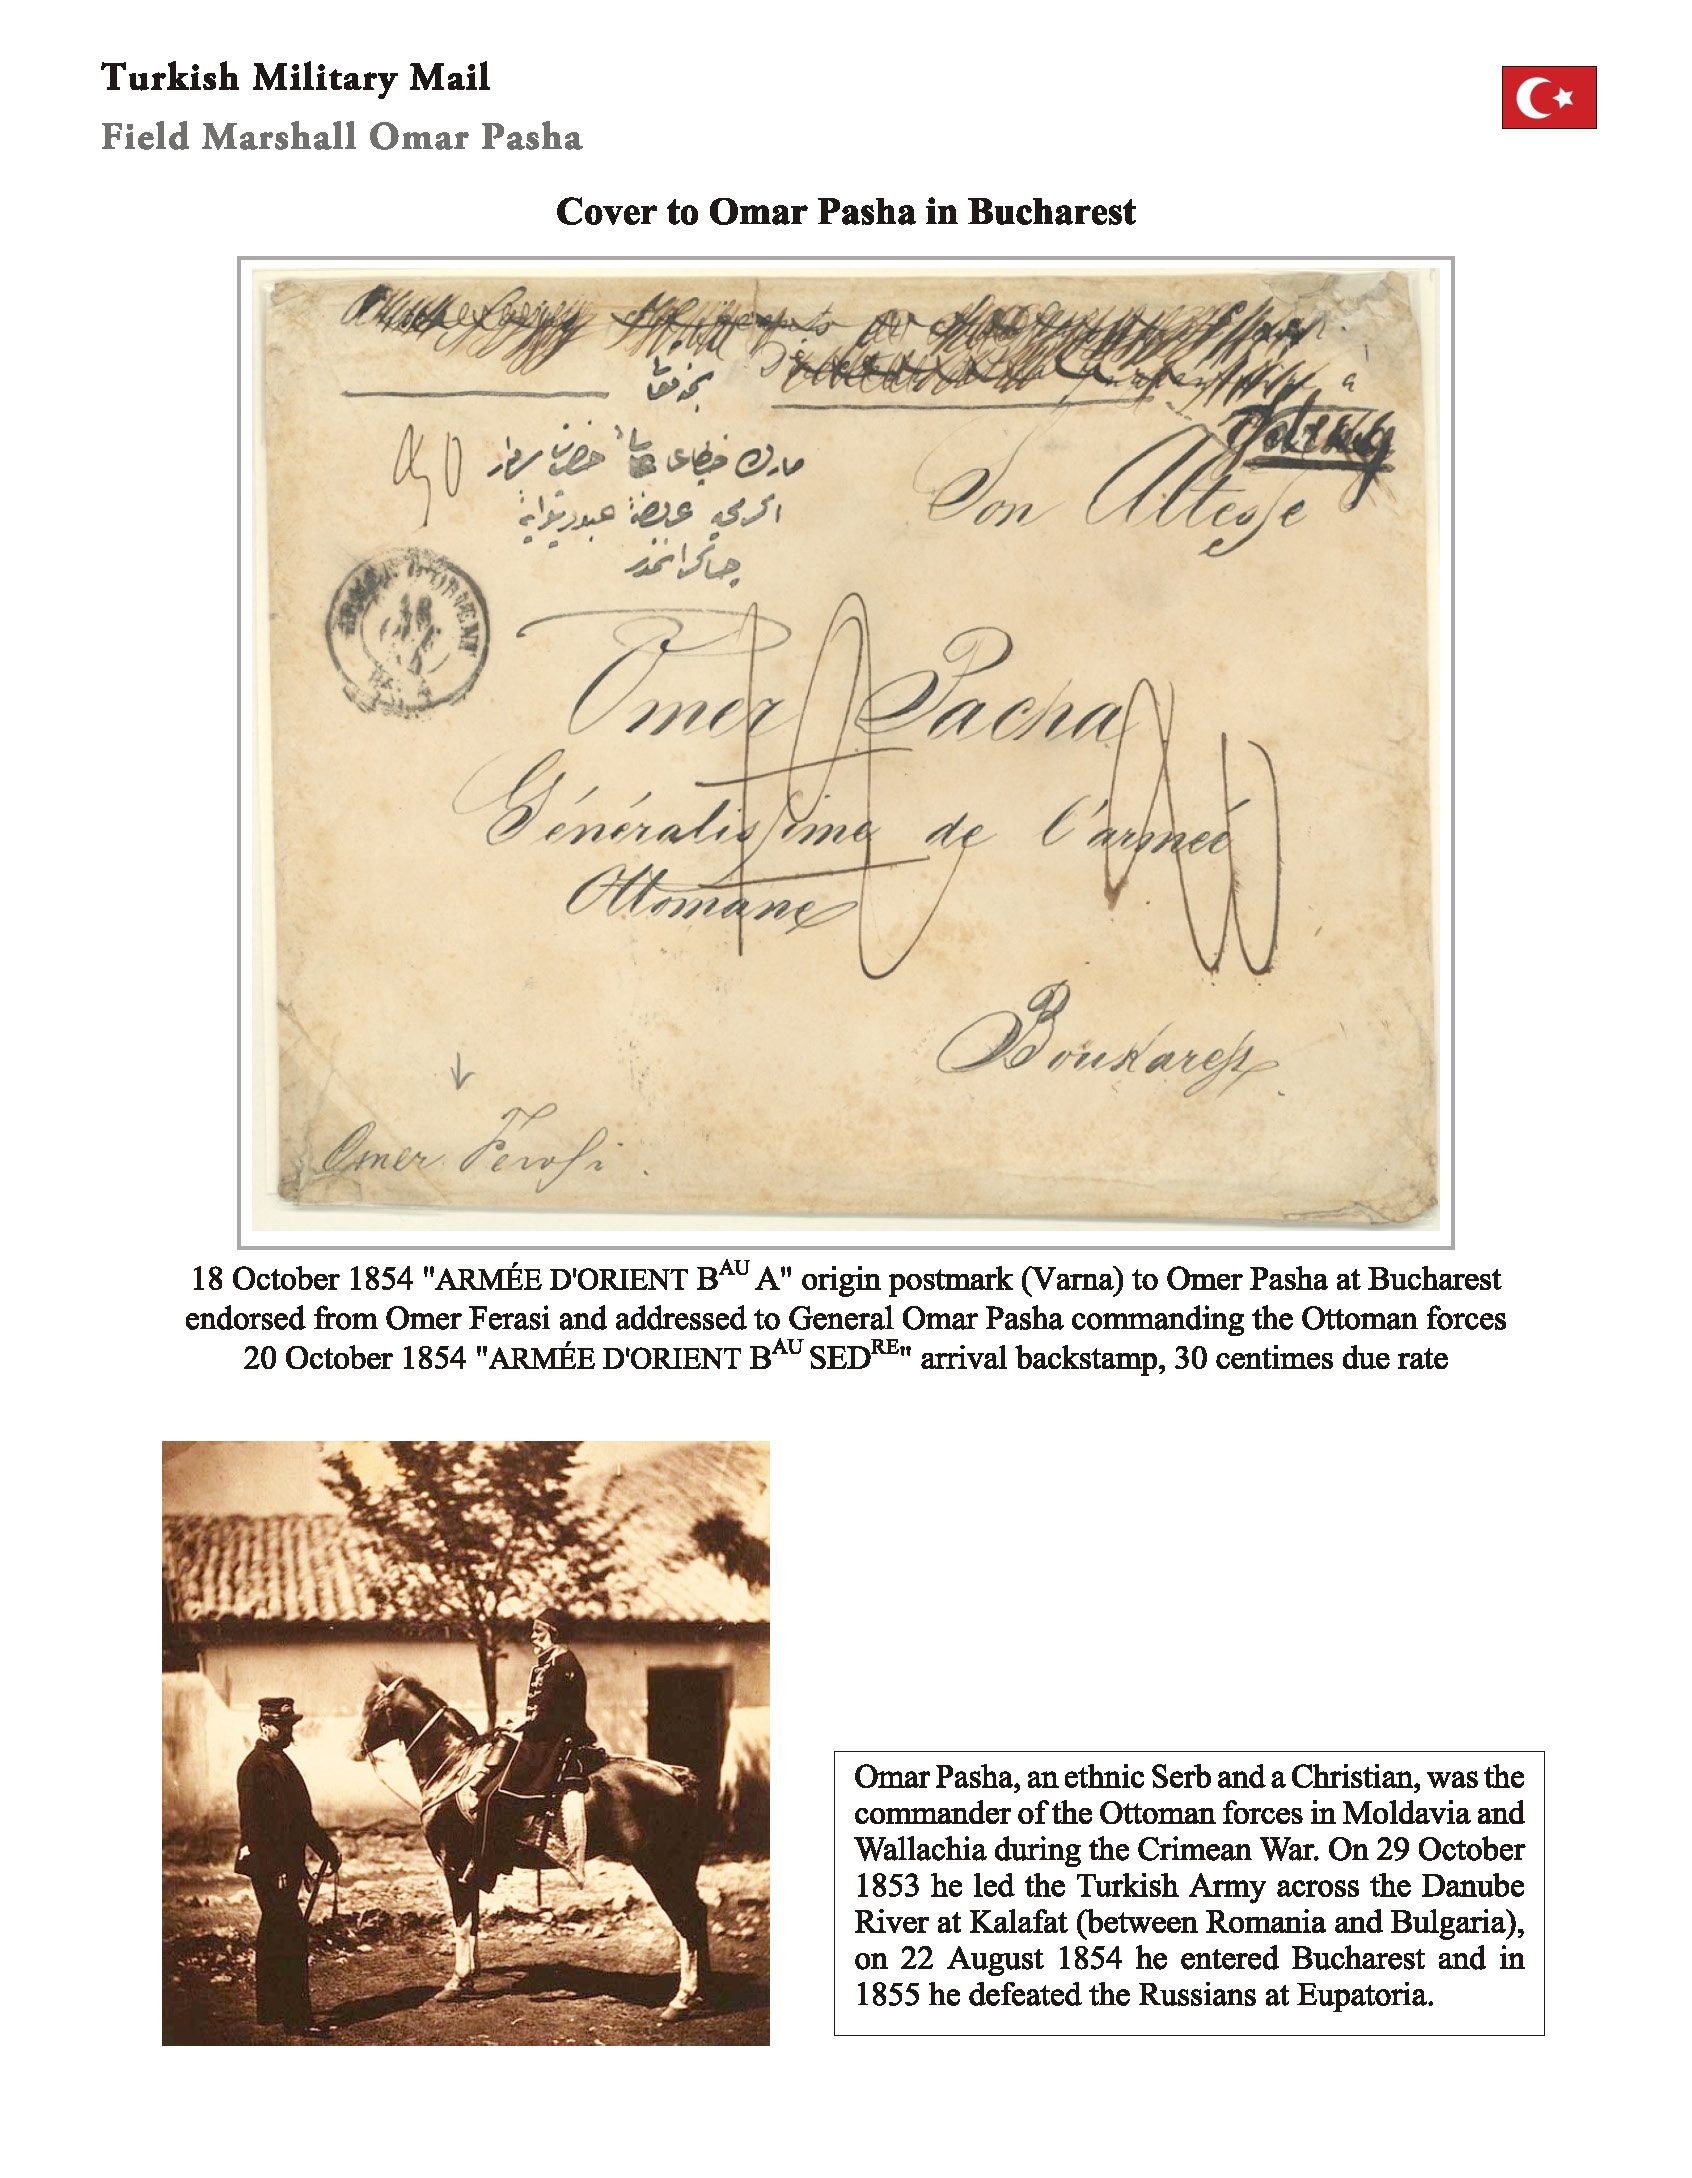 Turkish Military Mail
Field Marshall Omar Pasha
Cover to Omar Pasha in Bucharest
a
Son Altesse
ARMÉE D'ORIENT
Omer Pacha
Généralissime de l'armée
Ottomane
Boukarest
Omer Ferasi.
18 October 1854 "ARMÉE D'ORIENT BAU A" origin postmark (Varna) to Omer Pasha at Bucharest
endorsed from Omer Ferasi and addressed to General Omar Pasha commanding the Ottoman forces
20 October 1854 "ARMÉE D'ORIENT BAU SEDRE" arrival backstamp, 30 centimes due rate
Omar Pasha, an ethnic Serb and a Christian, was the
commander of the Ottoman forces in Moldavia and
Wallachia during the Crimean War. On 29 October
1853 he led the Turkish Army across the Danube
River at Kalafat (between Romania and Bulgaria),
on 22 August 1854 he entered Bucharest and in
1855 he defeated the Russians at Eupatoria.